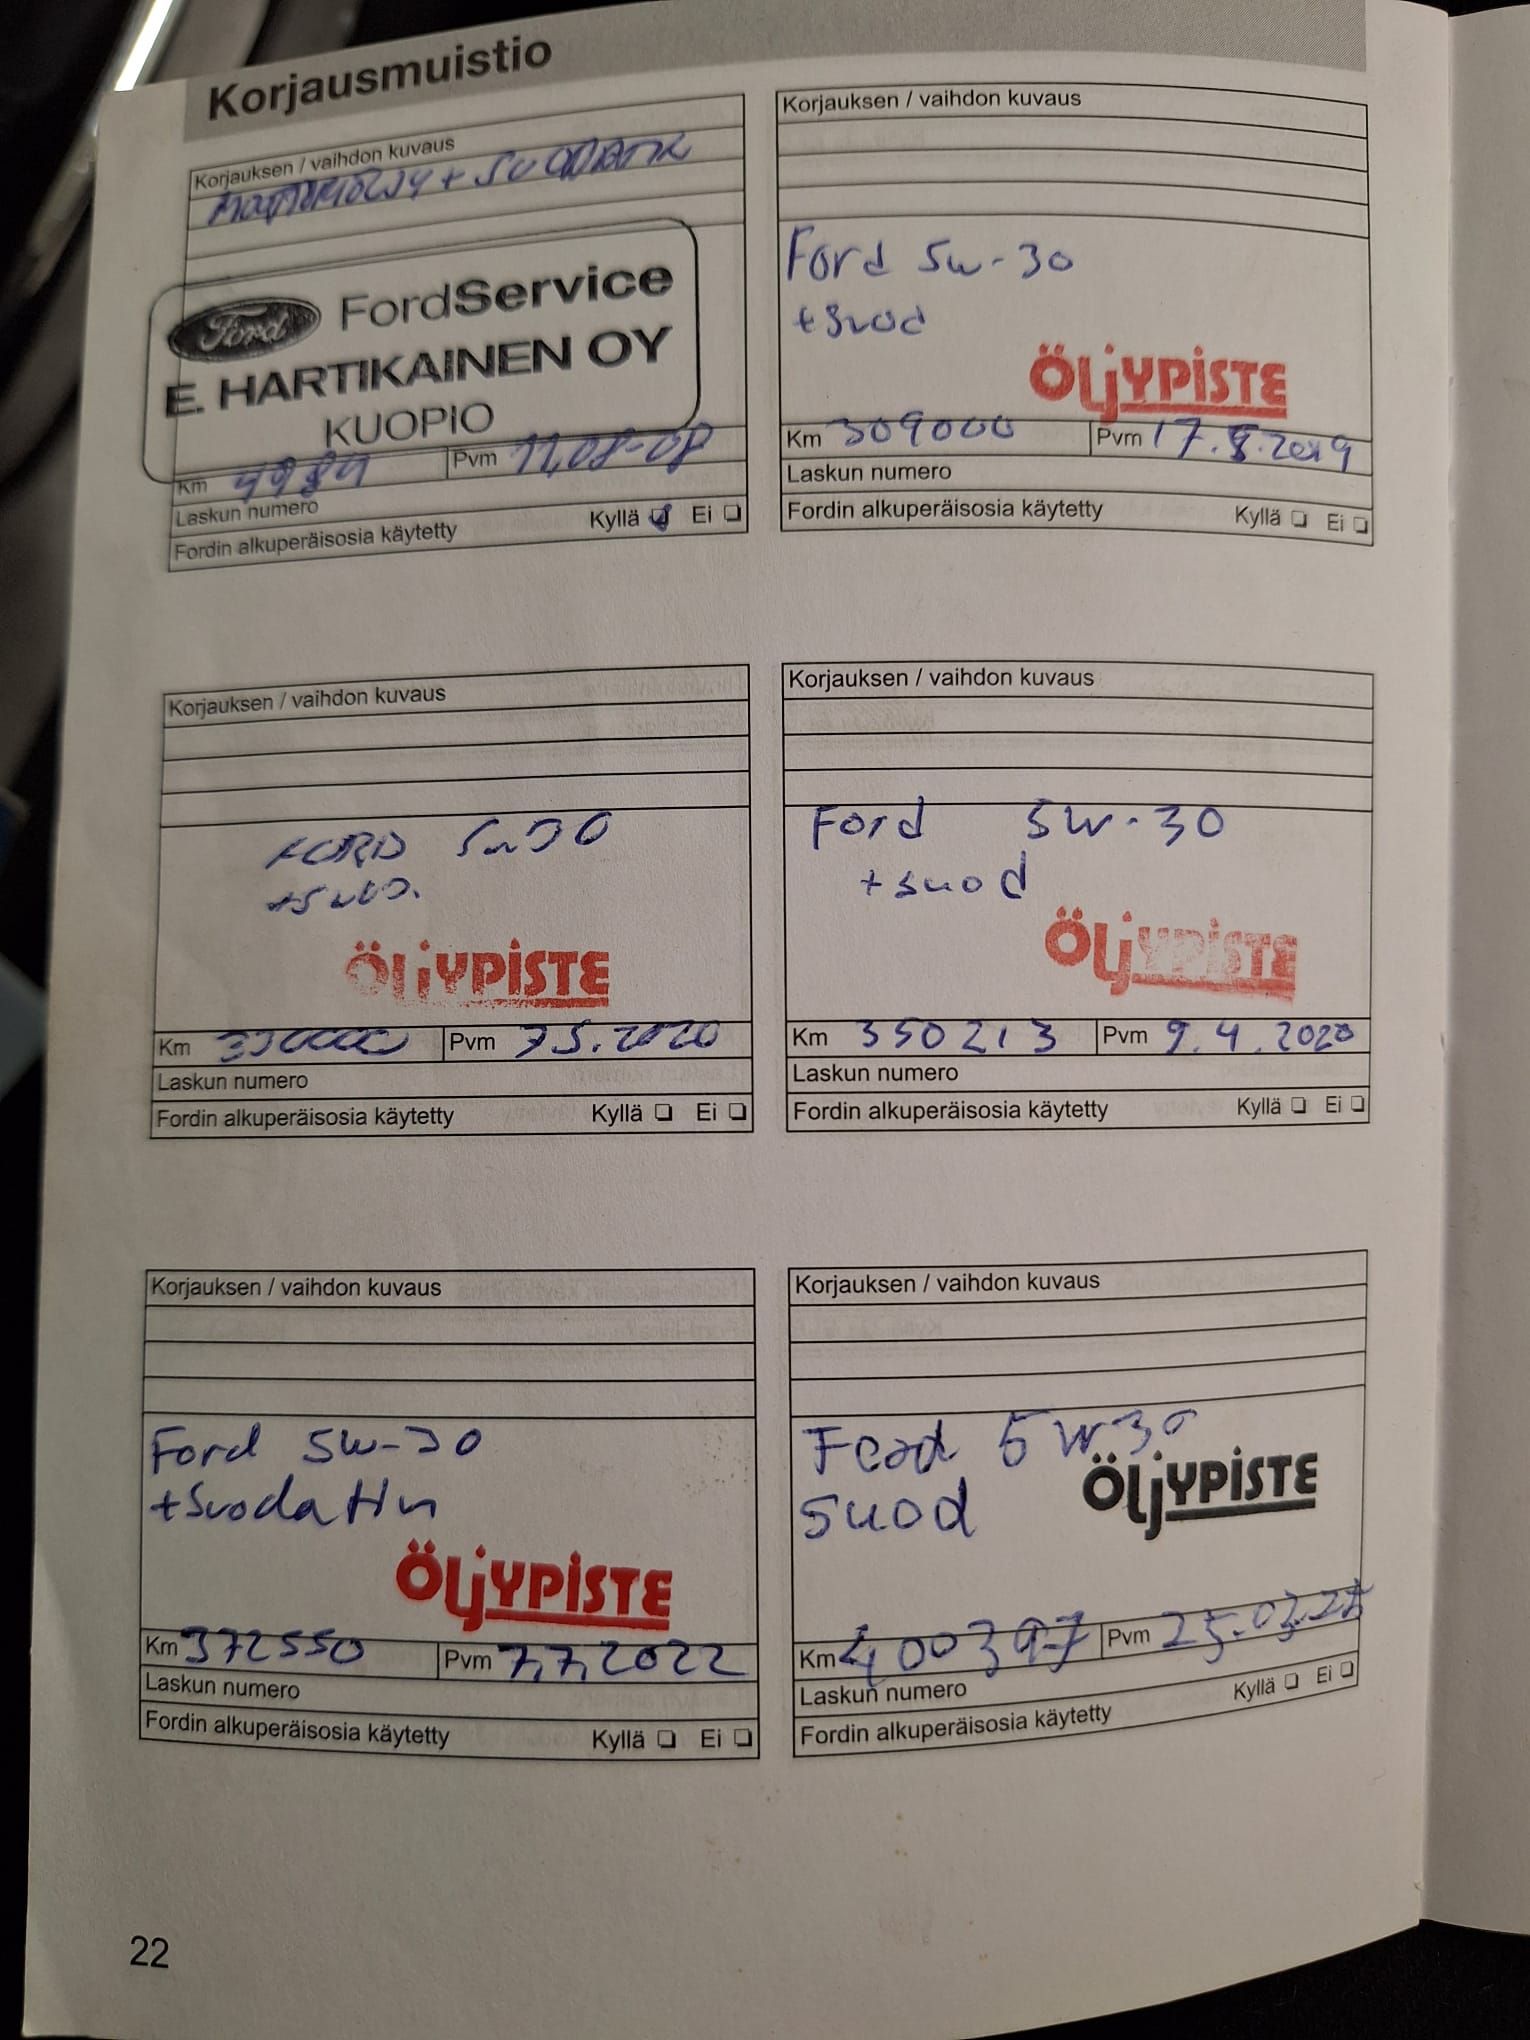 Korjausmuistio
Korjauksen / vaihdon kuvaus
Ford
FordService
E. HARTIKAINEN OY
KUOPIO
Km 4984 Pvm 11,08-08
Laskun numero
Fordin alkuperäisosia käytetty Kyllä Ei
Korjauksen / vaihdon kuvaus
Ford 5w-30
+Suod
ÖLJYPISTE
Km 309000 Pvm 17.8.2019
Laskun numero
Fordin alkuperäisosia käytetty Kyllä Ei
Korjauksen / vaihdon kuvaus
FORD 5w30
+Suod.
ÖLJYPISTE
Km 330000 Pvm 7.5.2020
Laskun numero
Fordin alkuperäisosia käytetty Kyllä Ei
Korjauksen / vaihdon kuvaus
Ford 5W-30
+suod
ÖLJYPISTE
Km 350213 Pvm 9.4.2020
Laskun numero
Fordin alkuperäisosia käytetty Kyllä Ei
Korjauksen / vaihdon kuvaus
Ford 5w-30
+Suodatin
ÖLJYPISTE
Km 372550 Pvm 7,7,2022
Laskun numero
Fordin alkuperäisosia käytetty Kyllä Ei
Korjauksen / vaihdon kuvaus
Ford 5W30
Suod
ÖLJYPISTE
Km 400397 Pvm
Laskun numero
Fordin alkuperäisosia käytetty Kyllä Ei
22